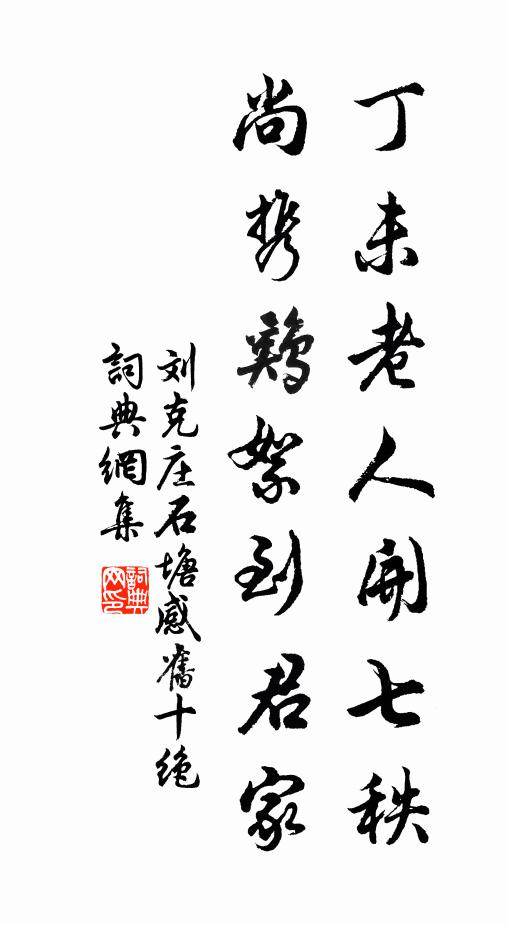 丁未老人開七秩
尚携鷄絮到君家
刘克庄石塘感舊十绝
詞典網集
詞典
网印